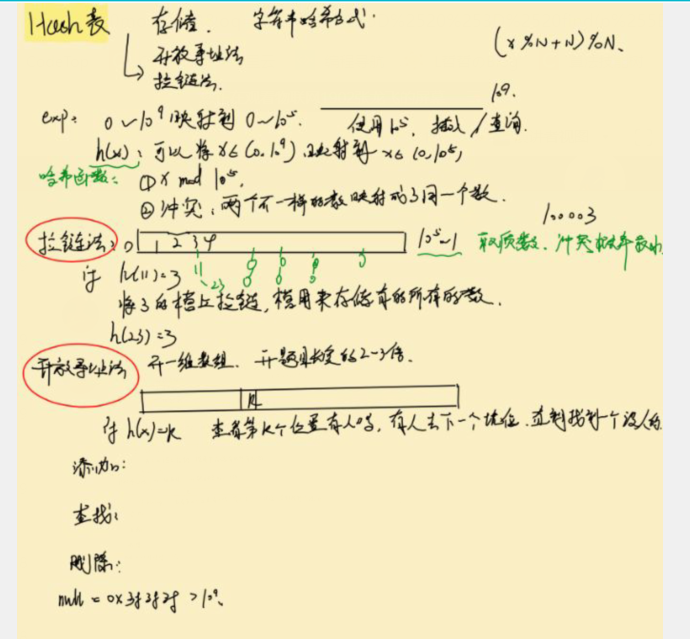 Hash表 存储. 字符串哈希方式.
开放寻址法
拉链法.
(x%N+N)%N.
10⁹.
exp: 0~10⁹映射到 0~10⁵.
使用10⁵, 插入/查询.
h(x): 可以将x∈(0,10⁹)映射到x∈(0,10⁵)
哈希函数: ① x mod 10⁵.
② 冲突: 两个不一样的数映射成了同一个数.
100003
拉链法: 0 1 2 3 4 10⁵-1 取质数. 冲突概率最小
11 23
h(11)=3
将3的槽上拉链, 槽用来存储有的所有的数.
h(23)=3
开放寻址法 开一维数组. 开题目给定的2-3倍.
k
h(x)=k 查看第k个位置有人吗, 有人去下一个坑位. 直到找到一个没人的
添加:
查找:
删除:
null = 0x3f3f3f > 10⁹.